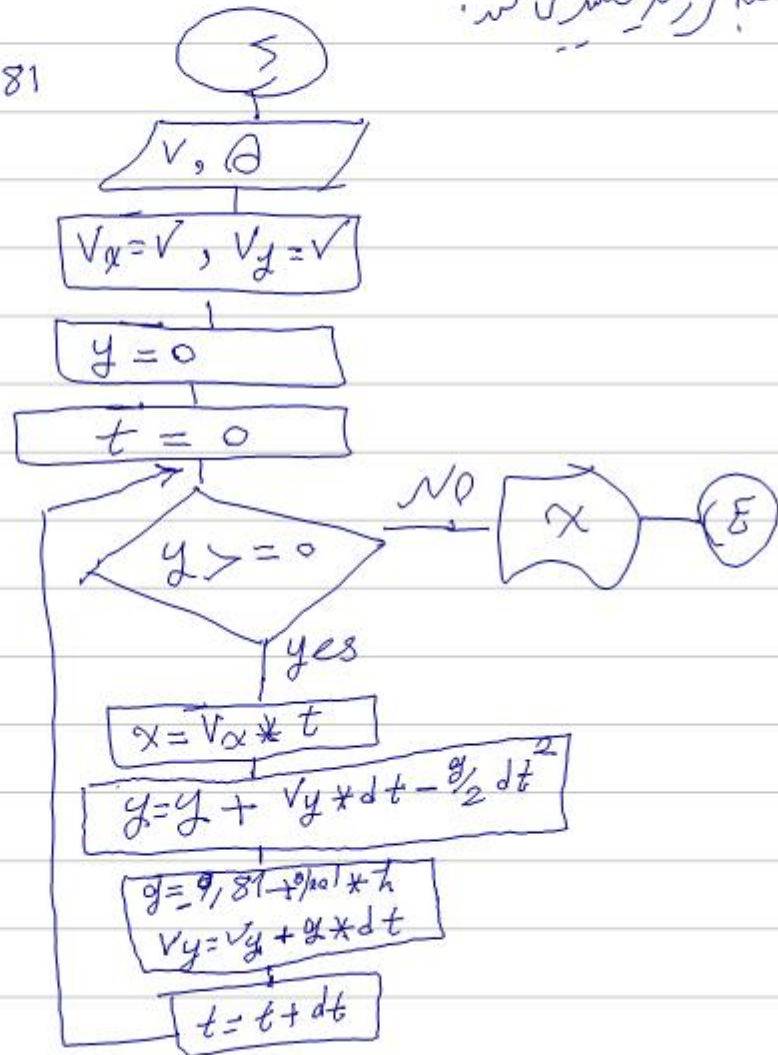 81
S
V, θ
Vx = √, Vy = √
y = 0
t = 0
y >= 0
NO
x
E
yes
x = Vx * t
y = y + Vy * dt - g/2 dt²
g = 9,81 * h
Vy = Vy + g * dt
t = t + dt